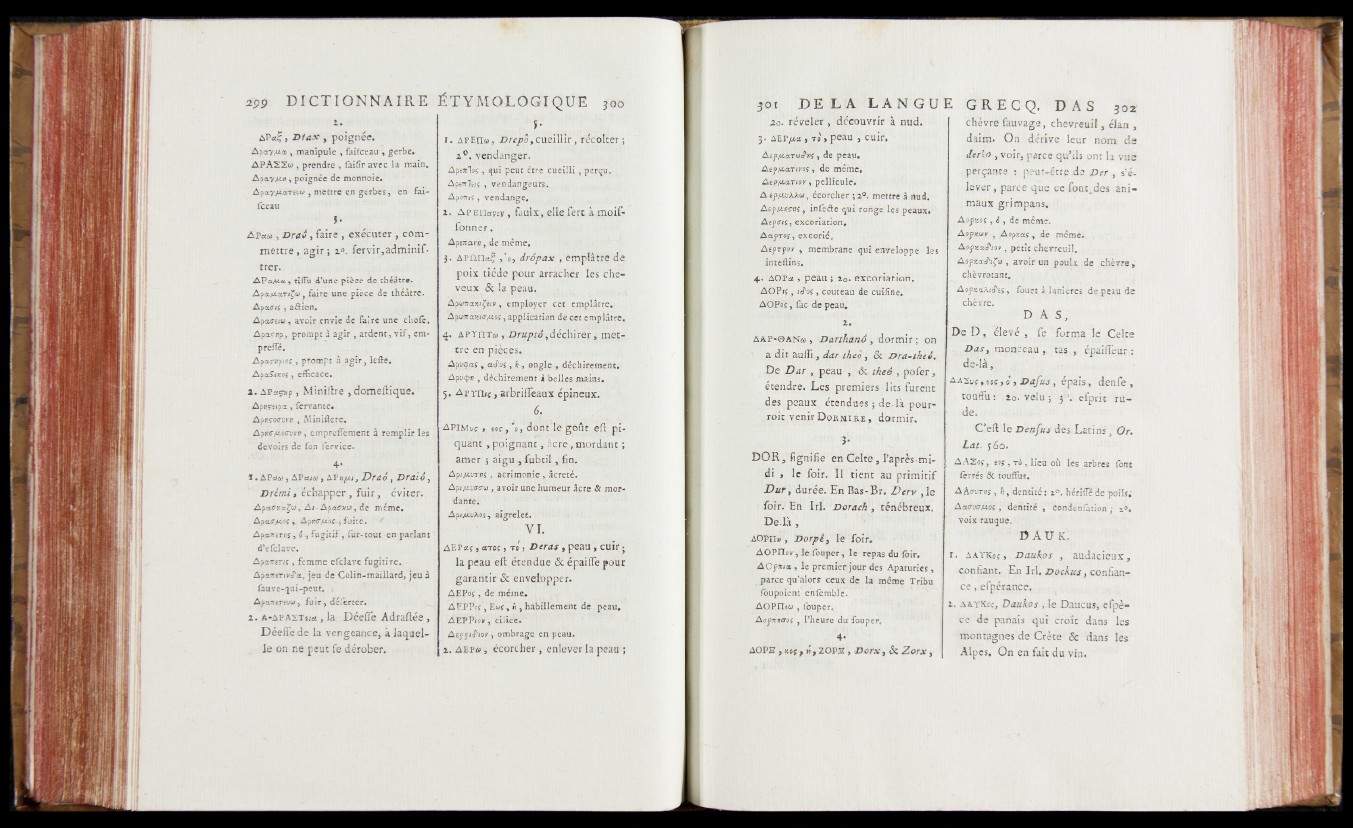 299 DICTIONNAIRE ÉTYMOLOGIQUE 300
2.
ΔΡαξ, Drax, poignée.
Δραγμα, manipule, faisceau, gerbe.
ΔΡΑΣΣω, prendre, saisir avec la main.
Δραγμη, poignée de monnoie.
Δραγματευω, mettre en gerbes, en fai-
sceau
3.
ΔΡαω, Draô, faire, exécuter, com-
mettre, agir; 2°. servir, adminis-
trer.
ΔΡαμα, tissu d'une pièce de théâtre.
Δραματιζω, faire une piece de théâtre.
Δρασις, action.
Δρασειω, avoir envie de faire une chose.
Δραστηρ, prompt à agir, ardent, vif, em-
pressé.
Δραστηριος, prompt à agir, leste.
Δραστικος, efficace.
2. ΔΡαστηρ, Ministre, domestique.
Δρηστειρα, servante.
Δρηστοσυνη, Ministère.
Δρησμοσυνη, empressement à remplir les
devoirs de son service.
4.
1. ΔΡαω, ΔΡαιω, ΔΡημι, Draô, Draiô,
Drêmi, échapper, fuir, éviter.
Δρασκαζω, Δι-Δρασκω, de même.
Δρασμος, Δρησμος, fuite.
Δραπετης, ὁ, fugitif, sur-tout en parlant
d'esclave.
Δραπετις, femme esclave fugitive.
Δραπετινδα, jeu de Colin-maillard, jeu à
sauve-qui-peut.
Δραπετευω, fuir, déserter.
2. Α-ΔΡΑΣΤεια, la Déesse Adrastée,
Déesse de la vengeance, à laquel-
le on ne peut se dérober.
5.
1. ΔΡΕΠω, Drepô, cueillir, récolter;
2°. vendanger.
Δρεπτος, qui peut être cueilli, perçu.
Δρεπτευς, vendangeurs.
Δρεπσις, vendange.
2. ΔΡΕΠανον, faulx, elle sert à mois-
sonner.
Δρεπανη, de même.
3. ΔΡΩΠαξ, ὁ, drôpax, emplâtre de
poix tiéde pour arracher les che-
veux & la peau.
Δρωπακιζειν, employer cet emplâtre.
Δρωπακισμος, application de cet emplâtre.
4. ΔΡΥΠΤω, Druptô, déchirer, met-
tre en pièces.
Δρυφας, αδος, ἡ, ongle, déchirement.
Δρυφη, déchirement à belles mains.
5. ΔΡΥΠις, arbrisseaux épineux.
6.
ΔΡΙΜυς, εος, ὁ, dont le goût est pi-
quant, poignant, âcre, mordant;
amer; aigu, subtil, fin.
Δριμυτης, acrimonie, âcreté.
Δριμυσσω, avoir une humeur âcre & mor-
dante.
Δριμυλος, aigrelet.
VI.
ΔΕΡας, ατος, τὸ, Deras, peau, cuir;
la peau est étendue & épaisse pour
garantir & envelopper.
ΔΕΡος, de même.
ΔΕΡΡις, Εως, ἡ, habillement de peau.
ΔΕΡΡιον, cilice.
Δερριδιον, ombrage en peau.
2. ΔΕΡω, écorcher, enlever la peau;
301 DE LA LANGUE GRECQ. DAS 302
2o. réveler, découvrir à nud.
3. ΔΕΡμα, τὸ, peau, cuir.
Δερματωδης, de peau.
Δερματινος, de même.
Δερματιον, pellicule.
Δερμυλλω, écorcher; 2°. mettre à nud.
Δερμηστος, insecte qui ronge les peaux.
Δερσις, excoriation.
Δαρτος, excorié.
Δερτρον, membrane qui enveloppe les
intestins.
4. ΔΟΡα, peau; 2o. excoriation.
ΔΟΡις, ιδος, couteau de cuisine.
ΔΟΡος, sac de peau.
2.
ΔΑΡ-ΘΑΝω, Darthanô, dormir; on
a dit aussi, dar theô, & Dra-theô.
De Dar, peau, & theô, poser,
étendre. Les premiers lits furent
des peaux étendues; de-là pour-
roit venir DORMIRE, dormir.
3.
DOR, signifie en Celte, l'après-mi-
di, le soir. Il tient au primitif
Dur, durée. En Bas-Br. Derv, le
soir. En Irl. Dorach, ténébreux.
De-là,
ΔΟΡΠη, Dorpê, le soir.
ΔΟΡΠον, le souper, le repas du soir.
ΔΟρπια, le premier jour des Apaturies,
parce qu'alors ceux de la même Tribu
soupoient ensemble.
ΔΟΡΠεω, souper.
Δορπηστος, l'heure du souper.
4.
ΔΟΡΞ, κος, ἡ, ΖΟΡΞ, Dorx, & Zorx,
chèvre sauvage, chevreuil, élan,
daim. On dérive leur nom de
derko, voir, parce qu'ils ont la vue
perçante: peut-être de Der, s'é-
lever, parce que ce sont des ani-
maux grimpans.
Δορκος, ὁ, de même.
Δορκων, Δορκας, de même.
Δορκαδιον, petit chevreuil.
Δορκαδιζω, avoir un poulx de chèvre,
chèvrotant.
Δορκαλιδες, fouet à lanieres de peau de
chèvre.
DAS,
De D, élevé, se forma le Celte
Das, monceau, tas, épaisseur:
de-là,
ΔΑΣυς, εος, ὁ, Dasus, épais, dense,
touffu: 2o. velu; 3°. esprit ru-
de.
C'est le Densus des Latins, Or.
Lat. 560.
ΔΑΣος, εος, τὸ, lieu où les arbres sont
serrés & touffus.
ΔΑσυτης, ἡ, densité: 2°. hérissé de poils.
Δασυσμος, densité, condensation; 2°.
voix rauque.
DAUK.
1. ΔΑΥΚος, Daukos, audacieux,
confiant. En Irl. Dockus, confian-
ce, espérance.
2. ΔΑΥΚος, Daukos, le Daucus, espè-
ce de panais qui croît dans les
montagnes de Crète & dans les
Alpes. On en fait du vin.